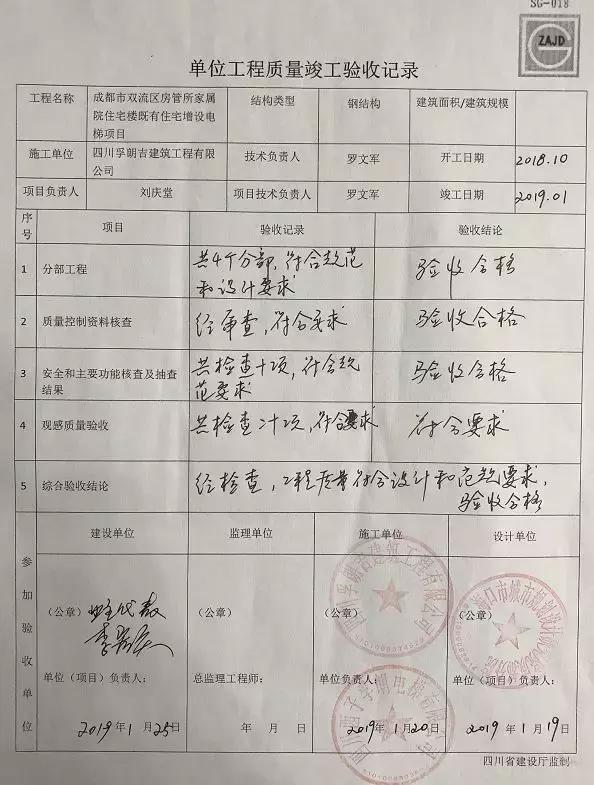 SG-018
ZAJD
单位工程质量竣工验收记录
工程名称 成都市双流区房管所家属院住宅楼既有住宅增设电梯项目 结构类型 钢结构 建筑面积/建筑规模
施工单位 四川孚朗吉建筑工程有限公司 技术负责人 罗文军 开工日期 2018.10
项目负责人 刘庆堂 项目技术负责人 罗文军 竣工日期 2019.01
序号 项目 验收记录 验收结论
1 分部工程 共4个分部,符合规范和设计要求 验收合格
2 质量控制资料核查 经审查,符合要求 验收合格
3 安全和主要功能核查及抽查结果 共检查十项,符合规范要求 验收合格
4 观感质量验收 共检查 项,符合要求 符合要求
5 综合验收结论 经检查,工程质量符合设计和规范要求,
验收合格
参加验收单位 建设单位 监理单位 施工单位 设计单位
(公章) (公章) (公章) (公章)
四川孚朗吉建筑工程有限公司
单位(项目)负责人: 总监理工程师: 单位负责人: 单位(项目)负责人:
2019年1月25日 年 月 日 2019年1月20日 2019年1月19日
四川省建设厅监制